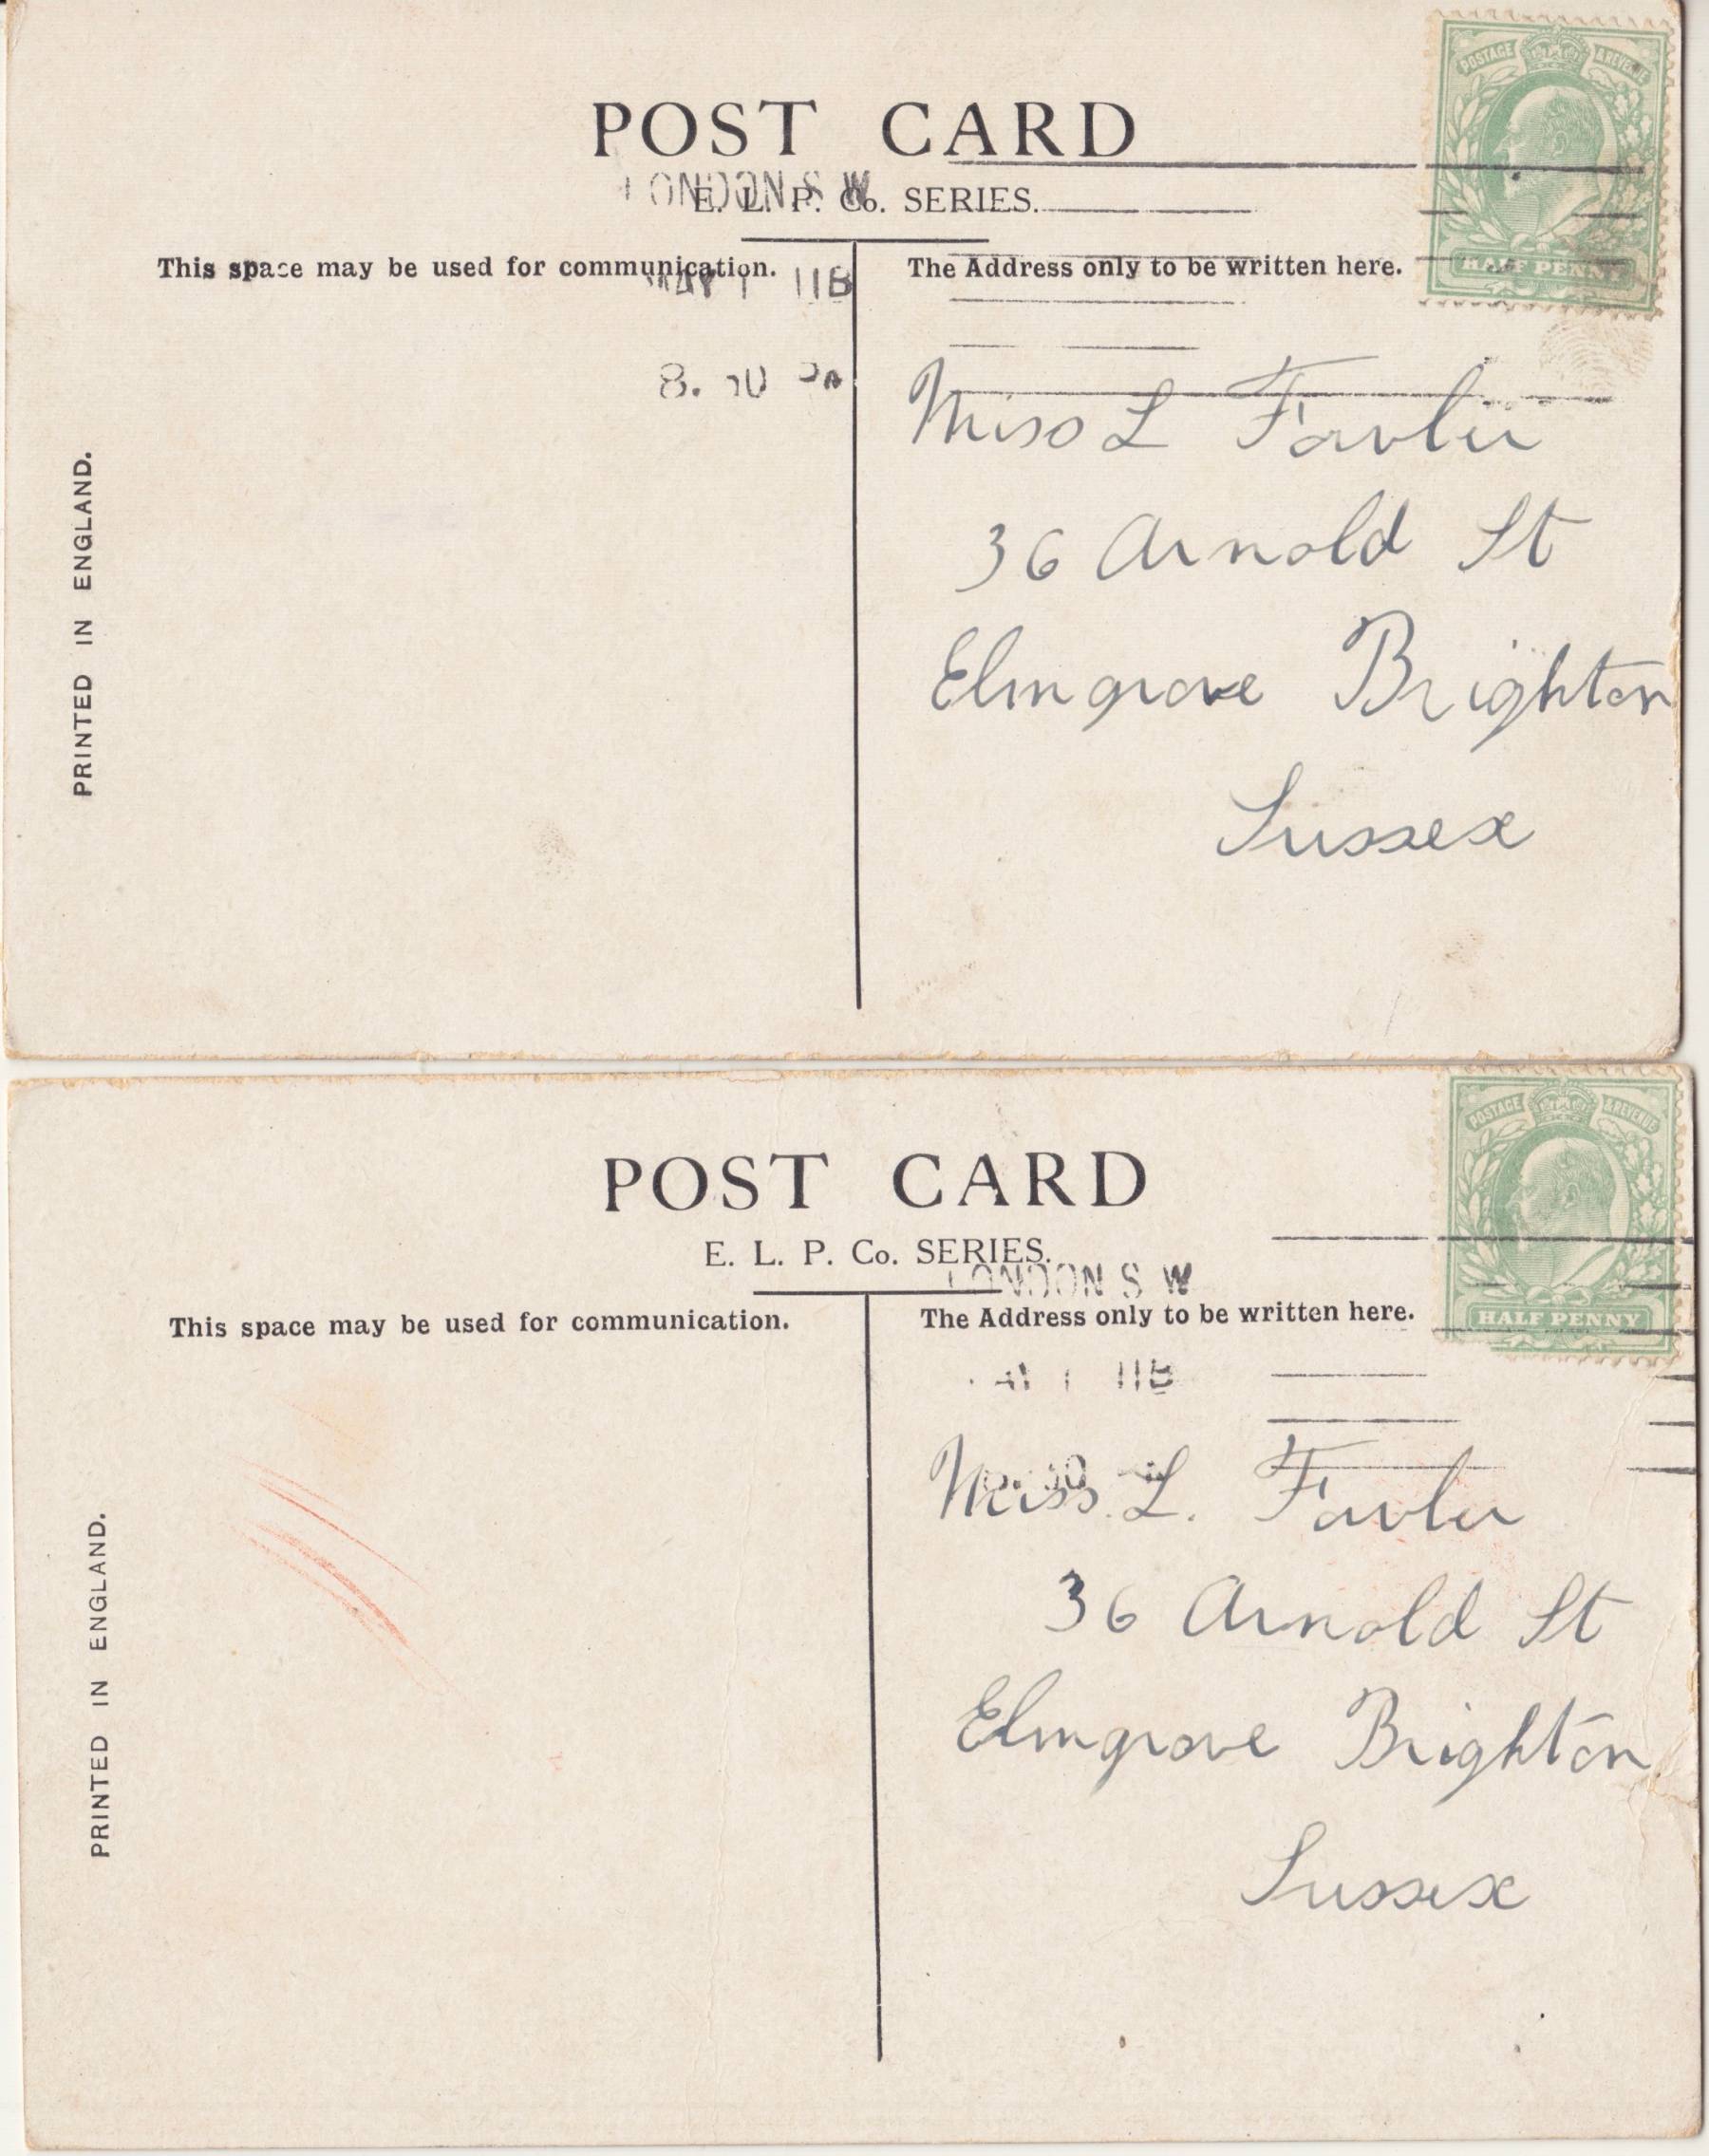 POSTAGE & REVENUE
POST CARD
LONDON S W
E. L. P. Co. SERIES.
This space may be used for communication.
The Address only to be written here.
HALF PENNY
MAY 1 11B
8. 30 PM
Miss L Fowler
36 Arnold St
Elmgrove Brighton
Sussex
PRINTED IN ENGLAND.
POSTAGE & REVENUE
POST CARD
E. L. P. Co. SERIES.
LONDON S W
This space may be used for communication.
The Address only to be written here.
HALF PENNY
1 11B
Miss. L. Fowler
36 Arnold St
Elmgrove Brighton
Sussex
PRINTED IN ENGLAND.